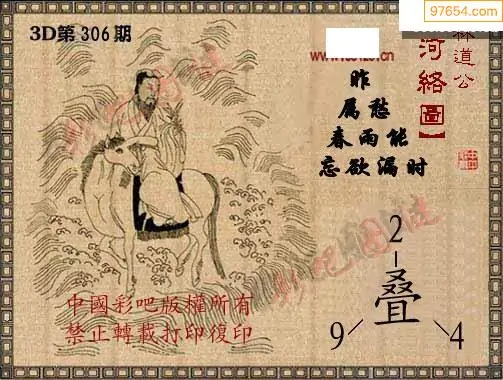 97654.com
3D第306期
林道公
河络圖】
昨
属愁
春雨能
忘欲漏时
彩吧圖谜
彩吧圖谜
2
叠
9 4
中國彩吧版權所有
禁止轉載打印復印